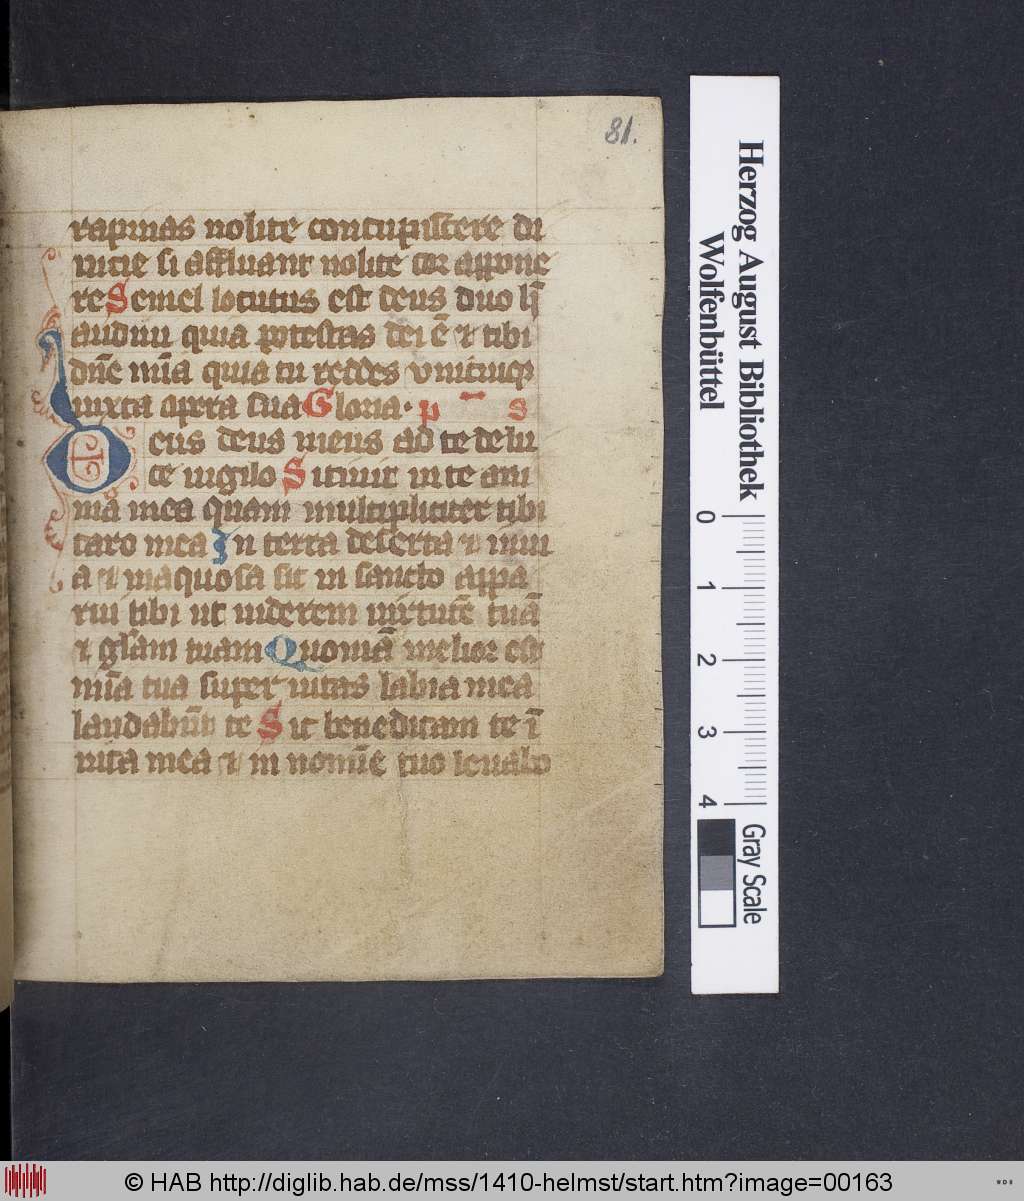 81.
rapinas nolite concupiscere di
uitie si affluant nolite cor appone
re Semel locutus est deus duo h̄
audiui quia potestas dei ē ⁊ tibi
dn̄e mīa quia tu reddes vnicuiqꝫ
iuxta opera sua Gloria · p̄ s
Deus deus meus ad te de lu
ce uigilo Sitiuit in te ani
ma mea quam multipliciter tibi
caro mea In terra deserta ⁊ inui
a ⁊ inaquosa sic in sancto appa
rui tibi ut uiderem uirtutē tuā
⁊ gl̄am tuam Quoniā melior est
mīa tua super uitas labia mea
laudabūt te Sic benedicam te ī
uita mea ⁊ in nomīe tuo leuabo
Herzog August Bibliothek
Wolfenbüttel
0
1
2
3
4
Gray Scale
© HAB http://diglib.hab.de/mss/1410-helmst/start.htm?image=00163